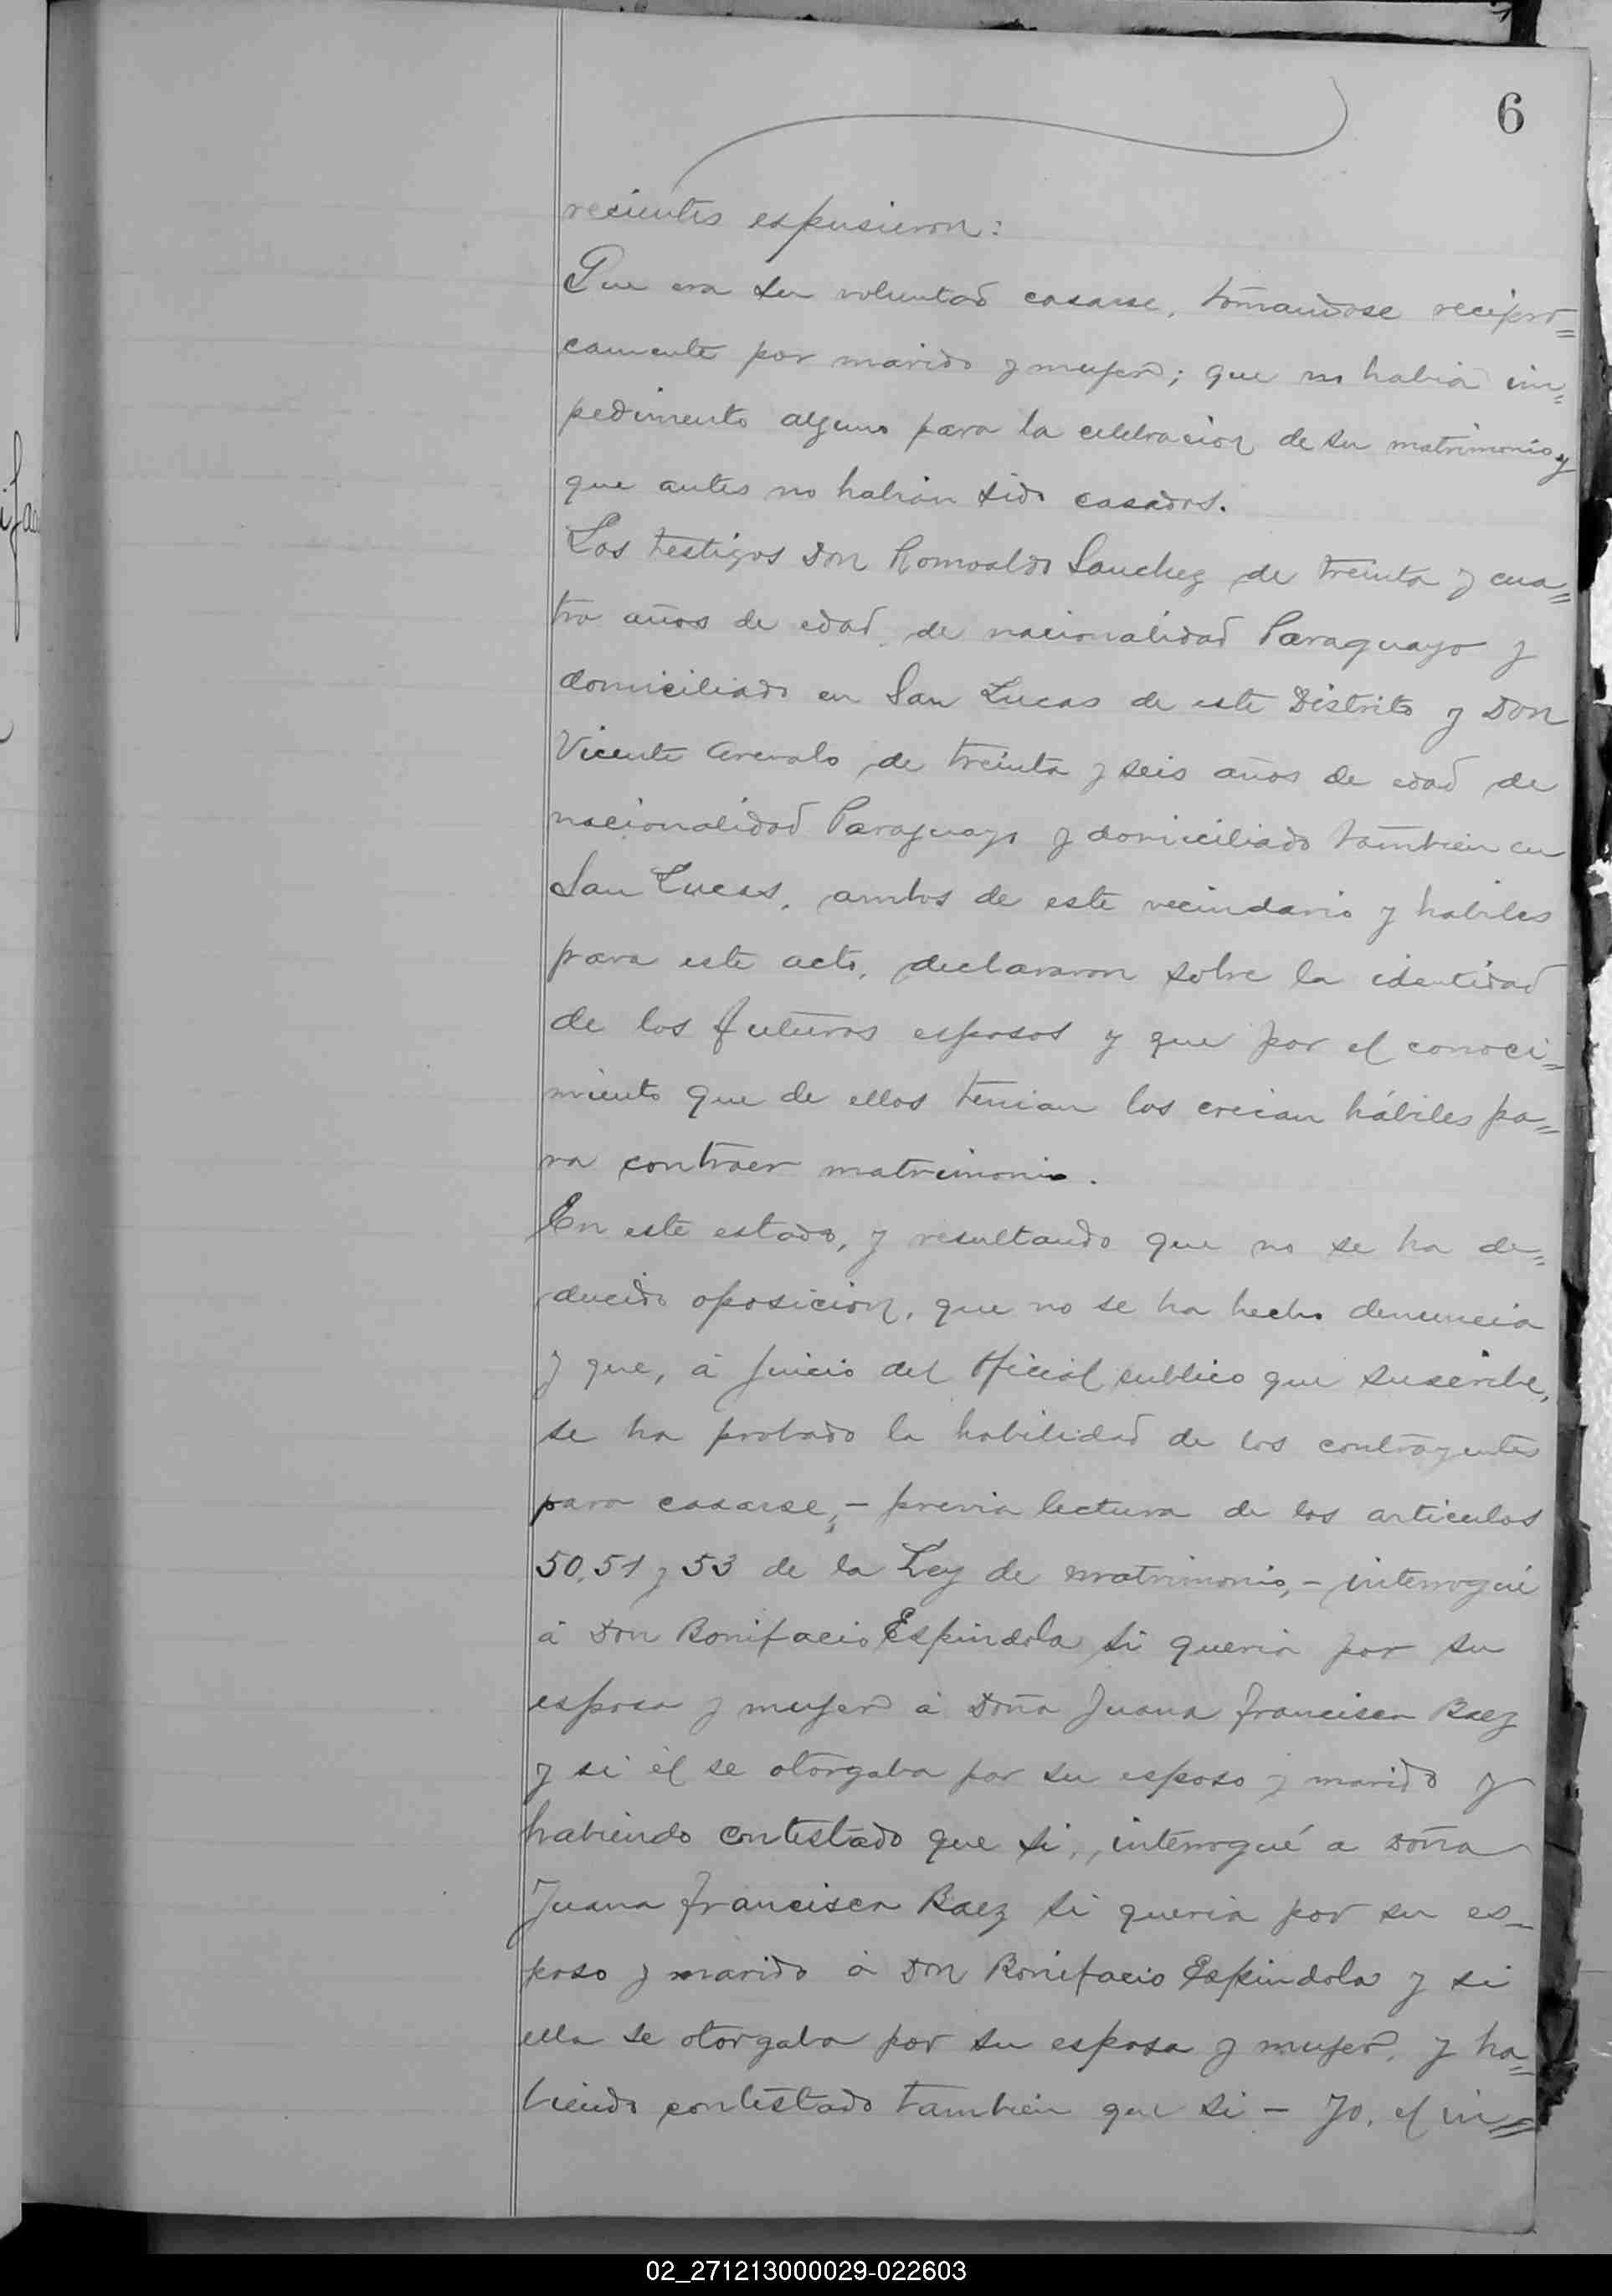 6
recientes espusieron:
Que era su voluntad casarse, tomandose recipro=
camente por marido y muger; que no habia im=
pedimento alguno para la celebracion de su matrimonio y
que antes no habian sido casados.
Los testigos Don Romualdo Sanchez de treinta y cua=
tro años de edad, de nacionalidad Paraguayo y
domiciliado en San Lucas de este Distrito y Don
Vicente Arevalo de treinta y seis años de edad de
nacionalidad Paraguayo y domiciliado tambien en
San Lucas, ambos de este vecindario y habiles
para este acto, declararon sobre la identidad
de los futuros esposos y que por el conoci=
miento que de ellos tenian los creian hábiles pa=
ra contraer matrimonio.
En este estado, y resultando que no se ha de=
ducido oposicion, que no se ha hecho denuncia
y que, á juicio del Oficial publico que suscribe,
se ha probado la habilidad de los contrayentes
para casarse,- previa lectura de los articulos
50, 51 y 53 de la Ley de matrimonio,- interrogué
á Don Bonifacio Espindola si queria por su
esposa y muger á Doña Juana Francisca Baez
y si él se otorgaba por su esposo y marido y
habiendo contestado que si, interrogué a Doña
Juana Francisca Baez si queria por su es-
poso y marido á Don Bonifacio Espindola y si
ella se otorgaba por su esposa y muger, y ha=
biendo contestado tambien que si - Yo, el in=
ifac
02_271213000029-022603